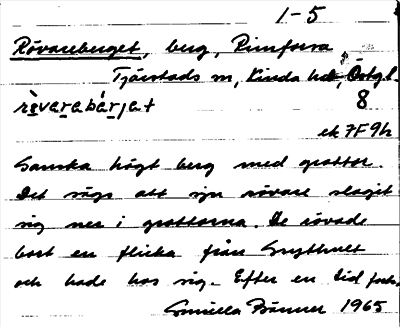 1-5
Rövareberget, berg, Rimforsa
Tjärstads sn, Kinda hd, Östg.l.
rövarabärjat 8
ek 7F9h
Ganska högt berg med grottor.
Det sägs att sju rövare slagit
sig ner i grottorna. De rövade
bort en flicka från
och hade hos sig. Efter en tid
Gunilla Bänner 1965